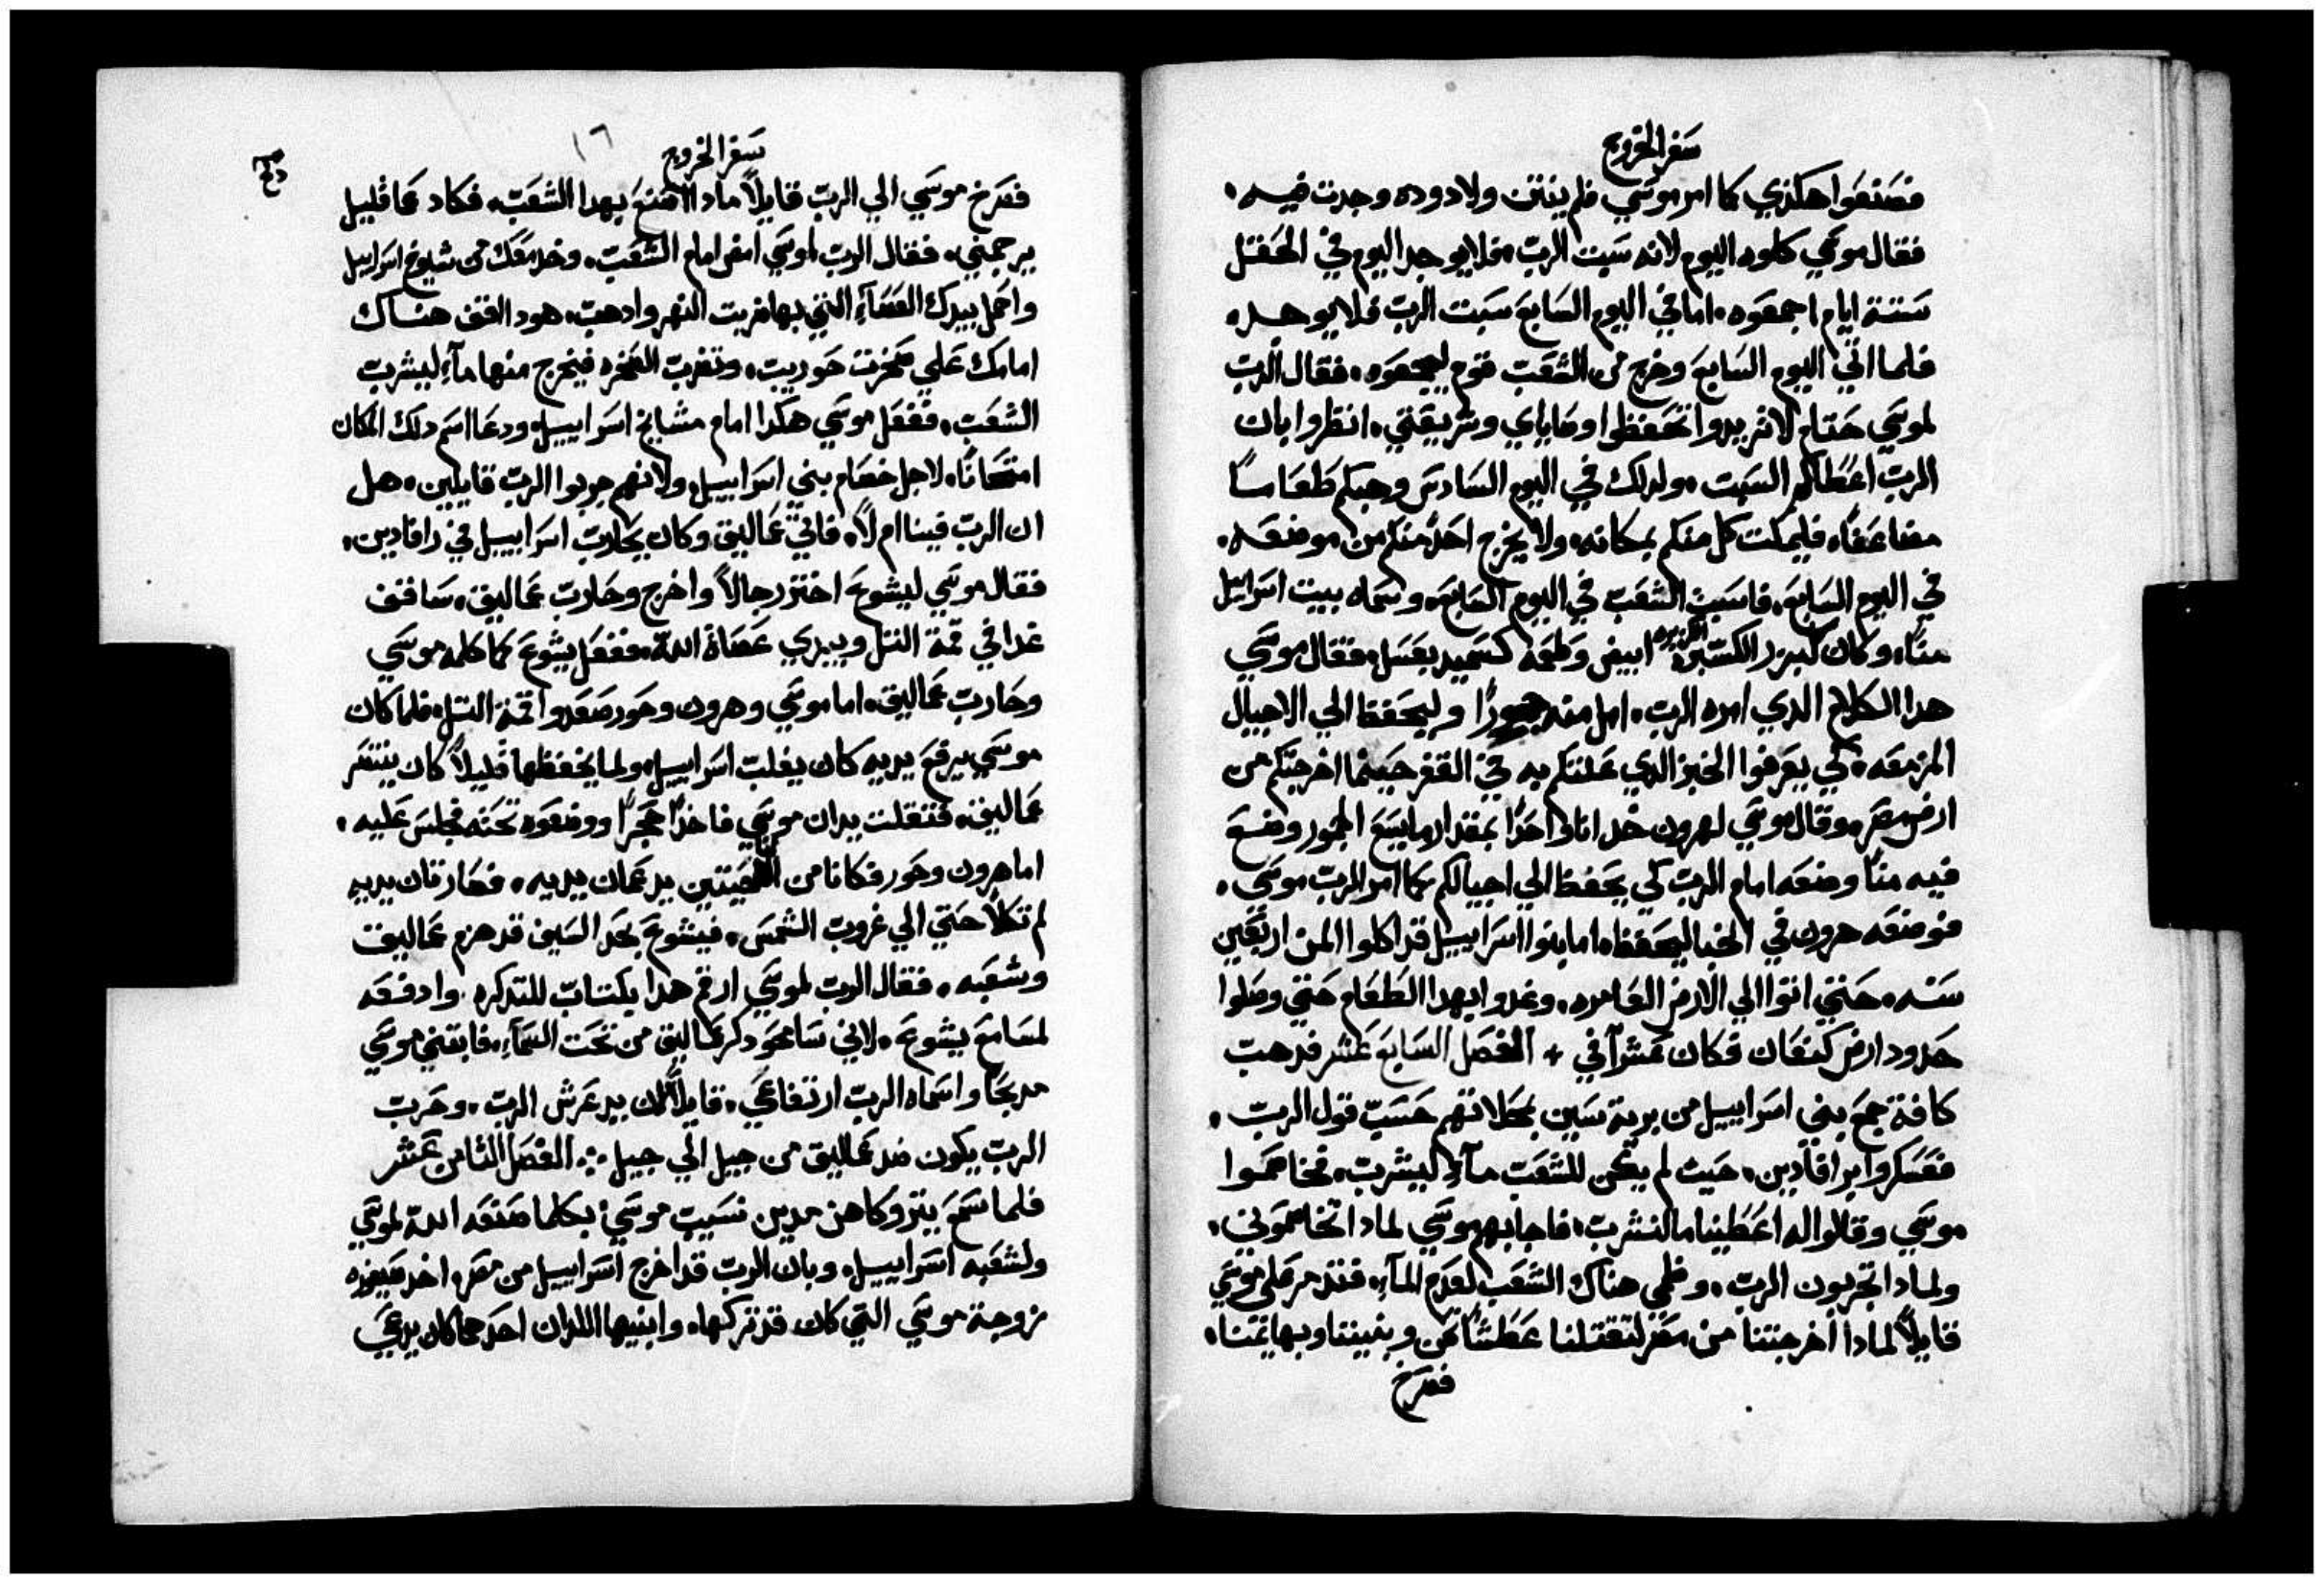 سفر الخروج
فصنعوا هكذي كما امر موسي فلم ينتن ولا دوده وجدت فيه.
فقال موسي كلوه اليوم لانه سبت الرب. فلا يوجد اليوم في الحقل
ستة ايام اجمعوه. اما في اليوم السابع سبت الرب فلا يوجد.
فلما اتي اليوم السابع وخرج من الشعب قوم ليجمعوه. فقال الرب
لموسي حتام لا تريدوا تحفظوا وصاياي وشريعتي. انظروا بان
الرب اعطاكم السبت. ولدلك في اليوم السادس وهبكم طعاما
مضاعفا. فليمكث كل منكم بمكانه. ولا يخرج احد منكم من موضعه.
في اليوم السابع. فاسبت الشعب في اليوم السابع. وسماه بيت اسرايل
منا. وكان كبزر الكسبره ابيض وطعمه كسميد بعسل. فقال موسي
هدا الكلام الدي امره الرب. امل منه وليحفظ الي الاجيال
المزمعه. كي يعرفوا الخبز الدي علتكم به في القفر حينما اخرجتكم من
ارض مصر. وقال موسي لهرون خد انا واحدا بمقدار ما يسع وضع
فيه منا وضعه امام الرب كي يحفظ الي اجيالكم كما امر الرب موسي.
فوضعه هرون في الخبا ليحفظ. اما بنوا اسراييل قد اكلوا المن اربعين
سنه. حتي اتوا الي الارض العامره. وغدوا بهدا الطعام حتي وصلوا
حدود ارض كنعان فكان عشرا في + الفصل السابع عشر فدهب
كافة جمع بني اسراييل من برية سين بمحلاتهم حسب قول الرب.
فعسكروا برافادين. حيث لم يكن للشعب مآء ليشرب. فخاصموا
موسي وقالوا له اعطينا ما لنشرب. فاجابهم موسي لمادا تخاصموني.
ولمادا تجربون الرب. وظمي هناك الشعب لعدم المآء. فتدمر علي موسي
قايلا لمادا اخرجتنا من مصر لتقتلنا عطشا نحن وبنيننا وبهايمنا.
فصرخ
١٦
سفر الخروج
فصرخ موسي الي الرب قايلا مادا اصنع بهدا الشعب. فكاد عما قليل
يرجمني. فقال الرب لموسي امض امام الشعب. وخد معك من شيوخ اسراييل
واحمل بيدك العصآء التي بها ضربت النهر وادهب. هودا اقف هناك
امامك علي صخرت حوريب. وتضرب الصخره فيخرج منها مآء ليشرب
الشعب. ففعل موسي هكدا امام مشايخ اسراييل. ودعا اسم دلك المكان
امتحانا. لاجل خصام بني اسراييل. ولانهم جربوا الرب قايلين. هل
ان الرب فينا ام لا. فاتي عماليق وكان يحارب اسراييل في رافادين.
فقال موسي ليشوع اختر رجالا واخرج وحارب عماليق. ساقف
غدا في قمة التل وبيدي عصاة الله. ففعل يشوع كما كلمه موسي
وحارب عماليق. اما موسي وهرون وحور صعدوا قمة التل. فلما كان
موسي يرفع يديه كان يغلب اسراييل. ولما يخفضها قليلا كان ينتصر
عماليق. فثقلت يدان موسي فاخدا حجرا ووضعوه تحته فجلس عليه.
اما هرون وحور فكانا من الجهتين يدعمان يديه. فصارتان يديه
لم تكلا حتي الي غروب الشمس. فيشوع بحد السيف قد هزم عماليق
وشعبه. فقال الرب لموسي ارقم هدا بكتاب للتدكره. وادفعه
لمسامع يشوع. لاني سامحو دكر عماليق من تحت السمآء. فابتني موسي
مدبحا واسماه الرب ارتفاعي. قايلا لان يد عرش الرب. وحرب
الرب يكون ضد عماليق من جيل الي جيل. الفصل الثامن عشر
فلما سمع يترو كاهن مدين نسيب موسي بكلما صنعه الله لموسي
ولشعبه اسراييل. وبان الرب قد اخرج اسراييل من مصر. اخد صيفره
زوجة موسي التي كان قد تركها. وابنيها اللدان احدهما كان يدعي